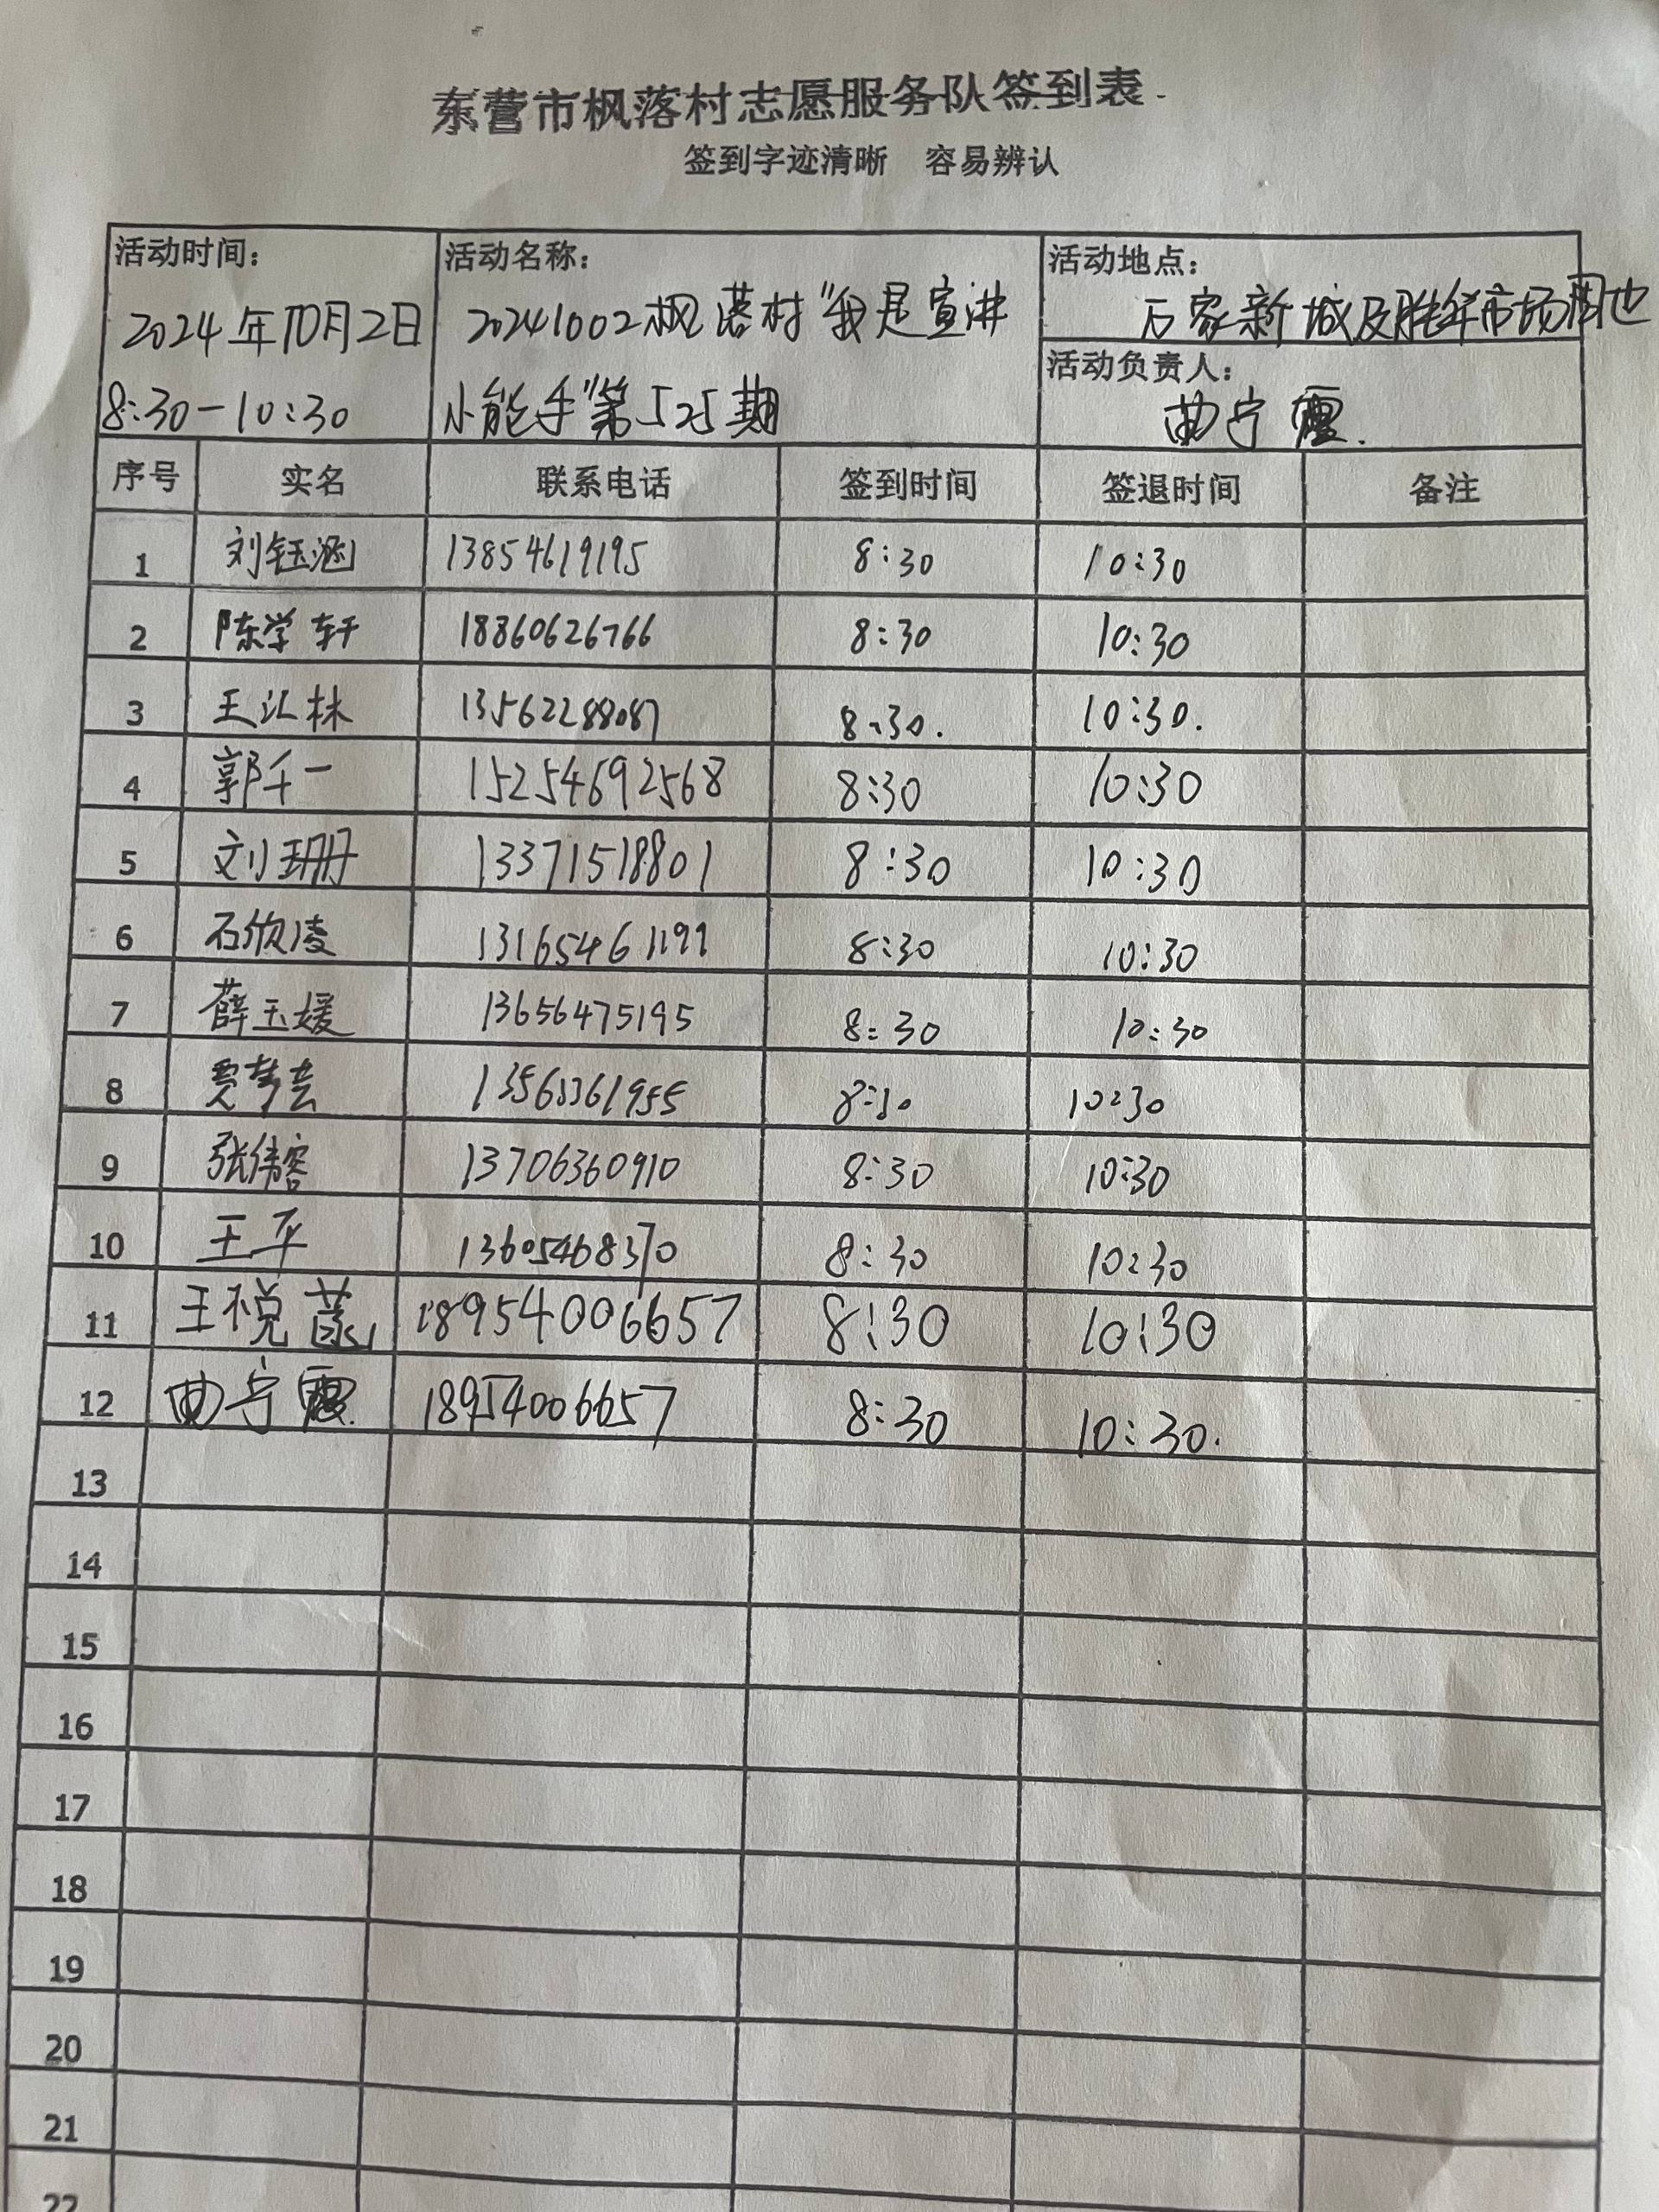 东营市枫落村志愿服务队签到表
签到字迹清晰 容易辨认
活动时间: 活动名称: 活动地点:
2024年10月2日 20241002枫落村"我是宣讲 万家新城及胜华市场周边
8:30-10:30 小能手"第525期
活动负责人:
曲宁霞.
序号 实名 联系电话 签到时间 签退时间 备注
1 刘钰涵 13854619195 8:30 10:30
2 陈学轩 18860626766 8:30 10:30
3 王汇林 13562288087 8:30. 10:30.
4 郭千一 15254692568 8:30 10:30
5 刘珊 13371518801 8:30 10:30
6 石欣凌 13165461199 8:30 10:30
7 薛玉媛 13656475195 8:30 10:30
8 贾梦芸 8:30 10:30
9 张伟容 13706360910 8:30 10:30
10 王平 13605468370 8:30 10:30
11 王悦菡 18954006657 8:30 10:30
12 曲宁霞. 18954006657 8:30 10:30.
13
14
15
16
17
18
19
20
21
22